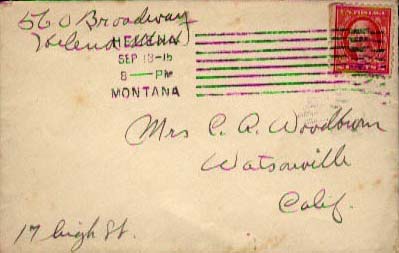 560 Broadway
Helena
HELENA
SEP 13-15
8 — PM
MONTANA
U.S. POSTAGE
Mrs C. A. Woodburn
Watsonville
Calif.
17 high St.